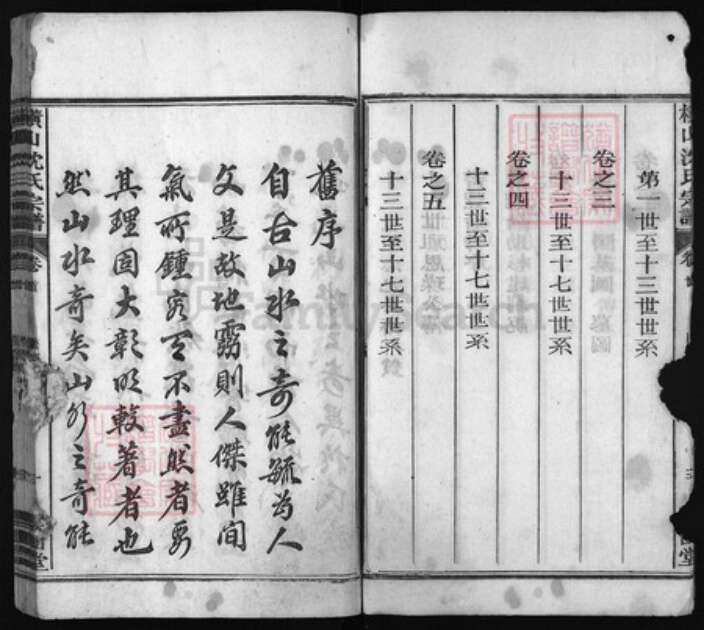 第一世至十三世世系
卷之三
十三世至十七世世系
卷之四
十三世至十七世世系
卷之五
十三世至十七世世系
舊序
自古山水之奇能毓為人
文是故地靈則人傑雖間
氣所鍾容有不盡然者要
其理固大彰明較著者也
然山水奇矣山水之奇能
橫山沈氏宗譜 卷首
FamilySearch